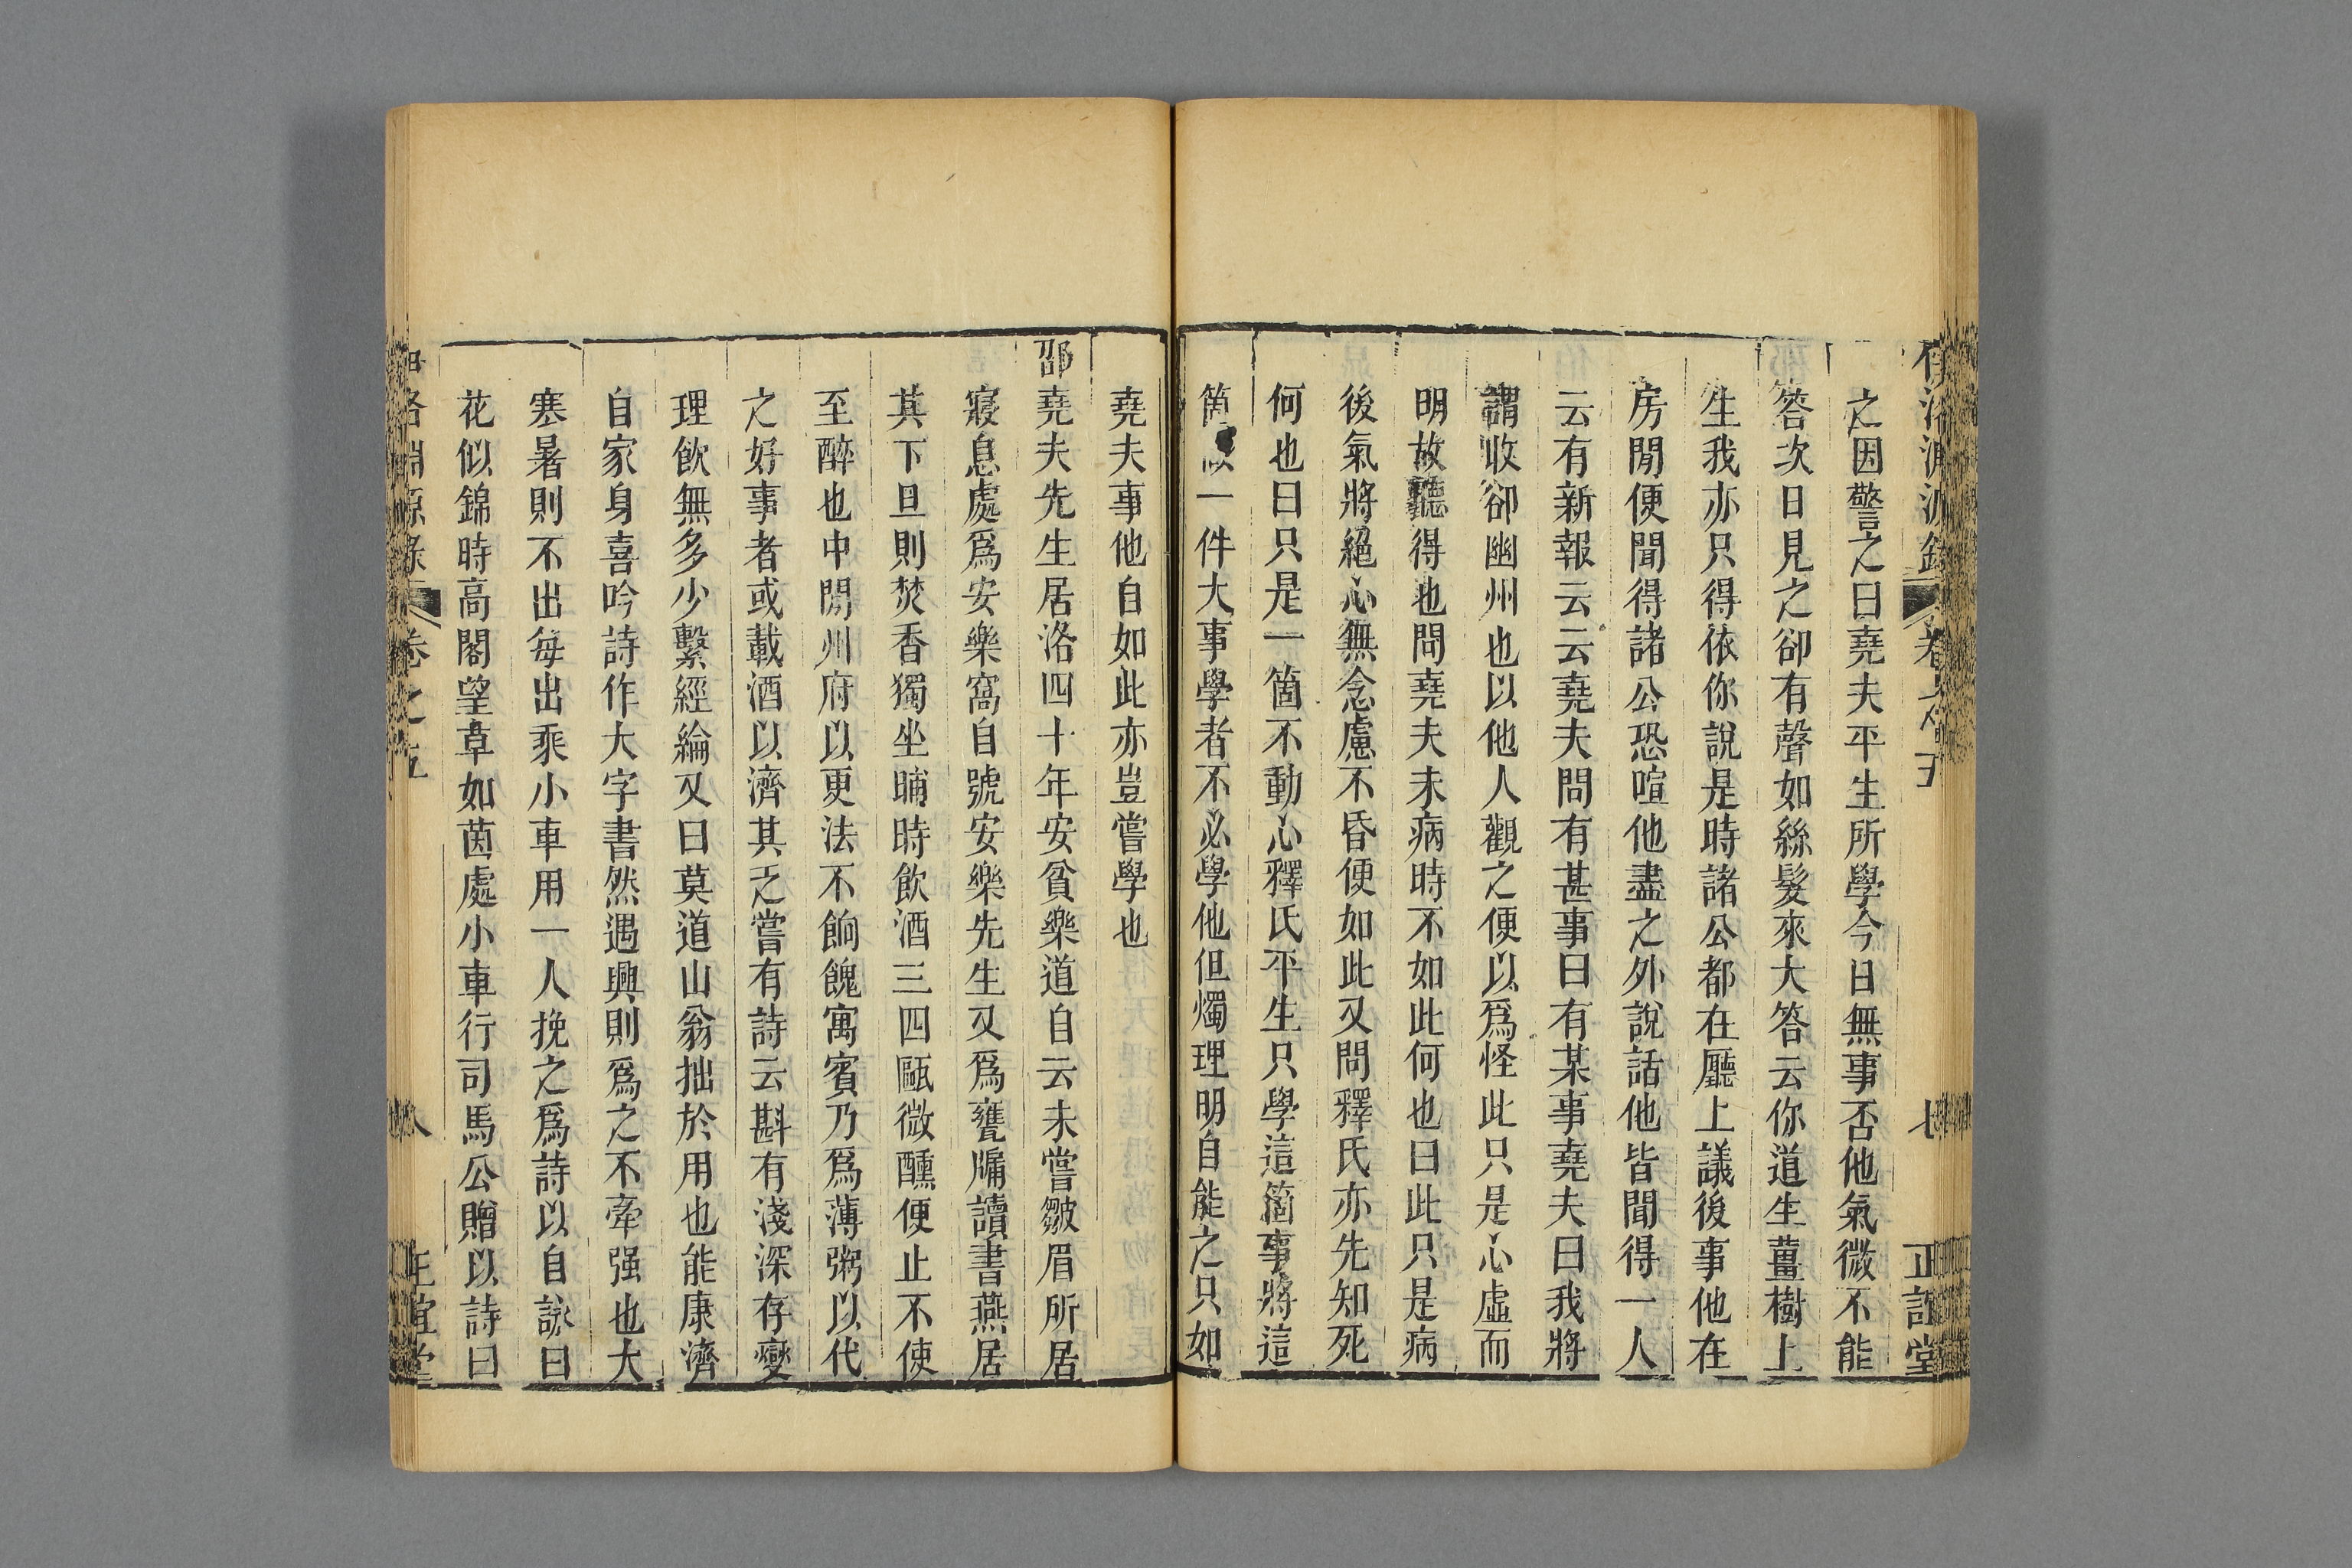 伊洛淵源錄 卷之五 七 正誼堂
之因警之曰堯夫平生所學今日無事否他氣微不能
答次日見之卻有聲如絲髮來大答云你道生薑樹上
生我亦只得依你說是時諸公都在廳上議後事他在
房閒便聞得諸公恐喧他盡之外說話他皆聞得一人
云有新報云云堯夫問有甚事曰有某事堯夫曰我將
謂收卻幽州也以他人觀之便以爲怪此只是心虛而
明故聽得也問堯夫未病時不如此何也曰此只是病
後氣將絕心無念慮不昏便如此又問釋氏亦先知死
何也曰只是一箇不動心釋氏平生只學這箇事將這
箇一件大事學者不必學他但燭理明自能之只如
堯夫事他自如此亦豈嘗學也
邵堯夫先生居洛四十年安貧樂道自云未嘗皺眉所居
寢息處爲安樂窩自號安樂先生又爲甕牖讀書燕居
其下旦則焚香獨坐晡時飲酒三四甌微醺便止不使
至醉也中閒州府以更法不餉餽寓賓乃爲薄粥以代
之好事者或載酒以濟其乏嘗有詩云斟有淺深存燮
理飲無多少繫經綸又曰莫道山翁拙於用也能康濟
自家身喜吟詩作大字書然遇興則爲之不牽强也大
寒暑則不出每出乘小車用一人挽之爲詩以自詠曰
花似錦時高閣望草如茵處小車行司馬公贈以詩曰
伊洛淵源錄 卷之五 八 正誼堂